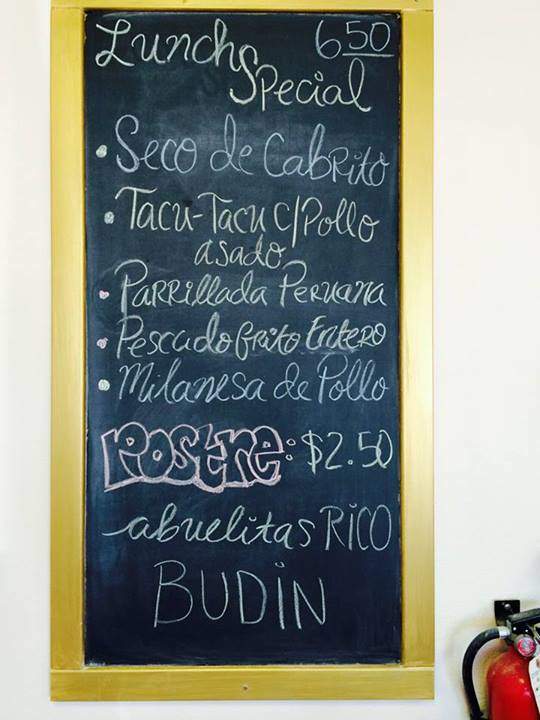 Lunch 6 50
Special
• Seco de Cabrito
• Tacu-Tacu c/Pollo
asado
• Parrillada Peruana
• Pescado frito Entero
• Milanesa de Pollo
Postre: $2.50
abuelitas RICO
BUDIN